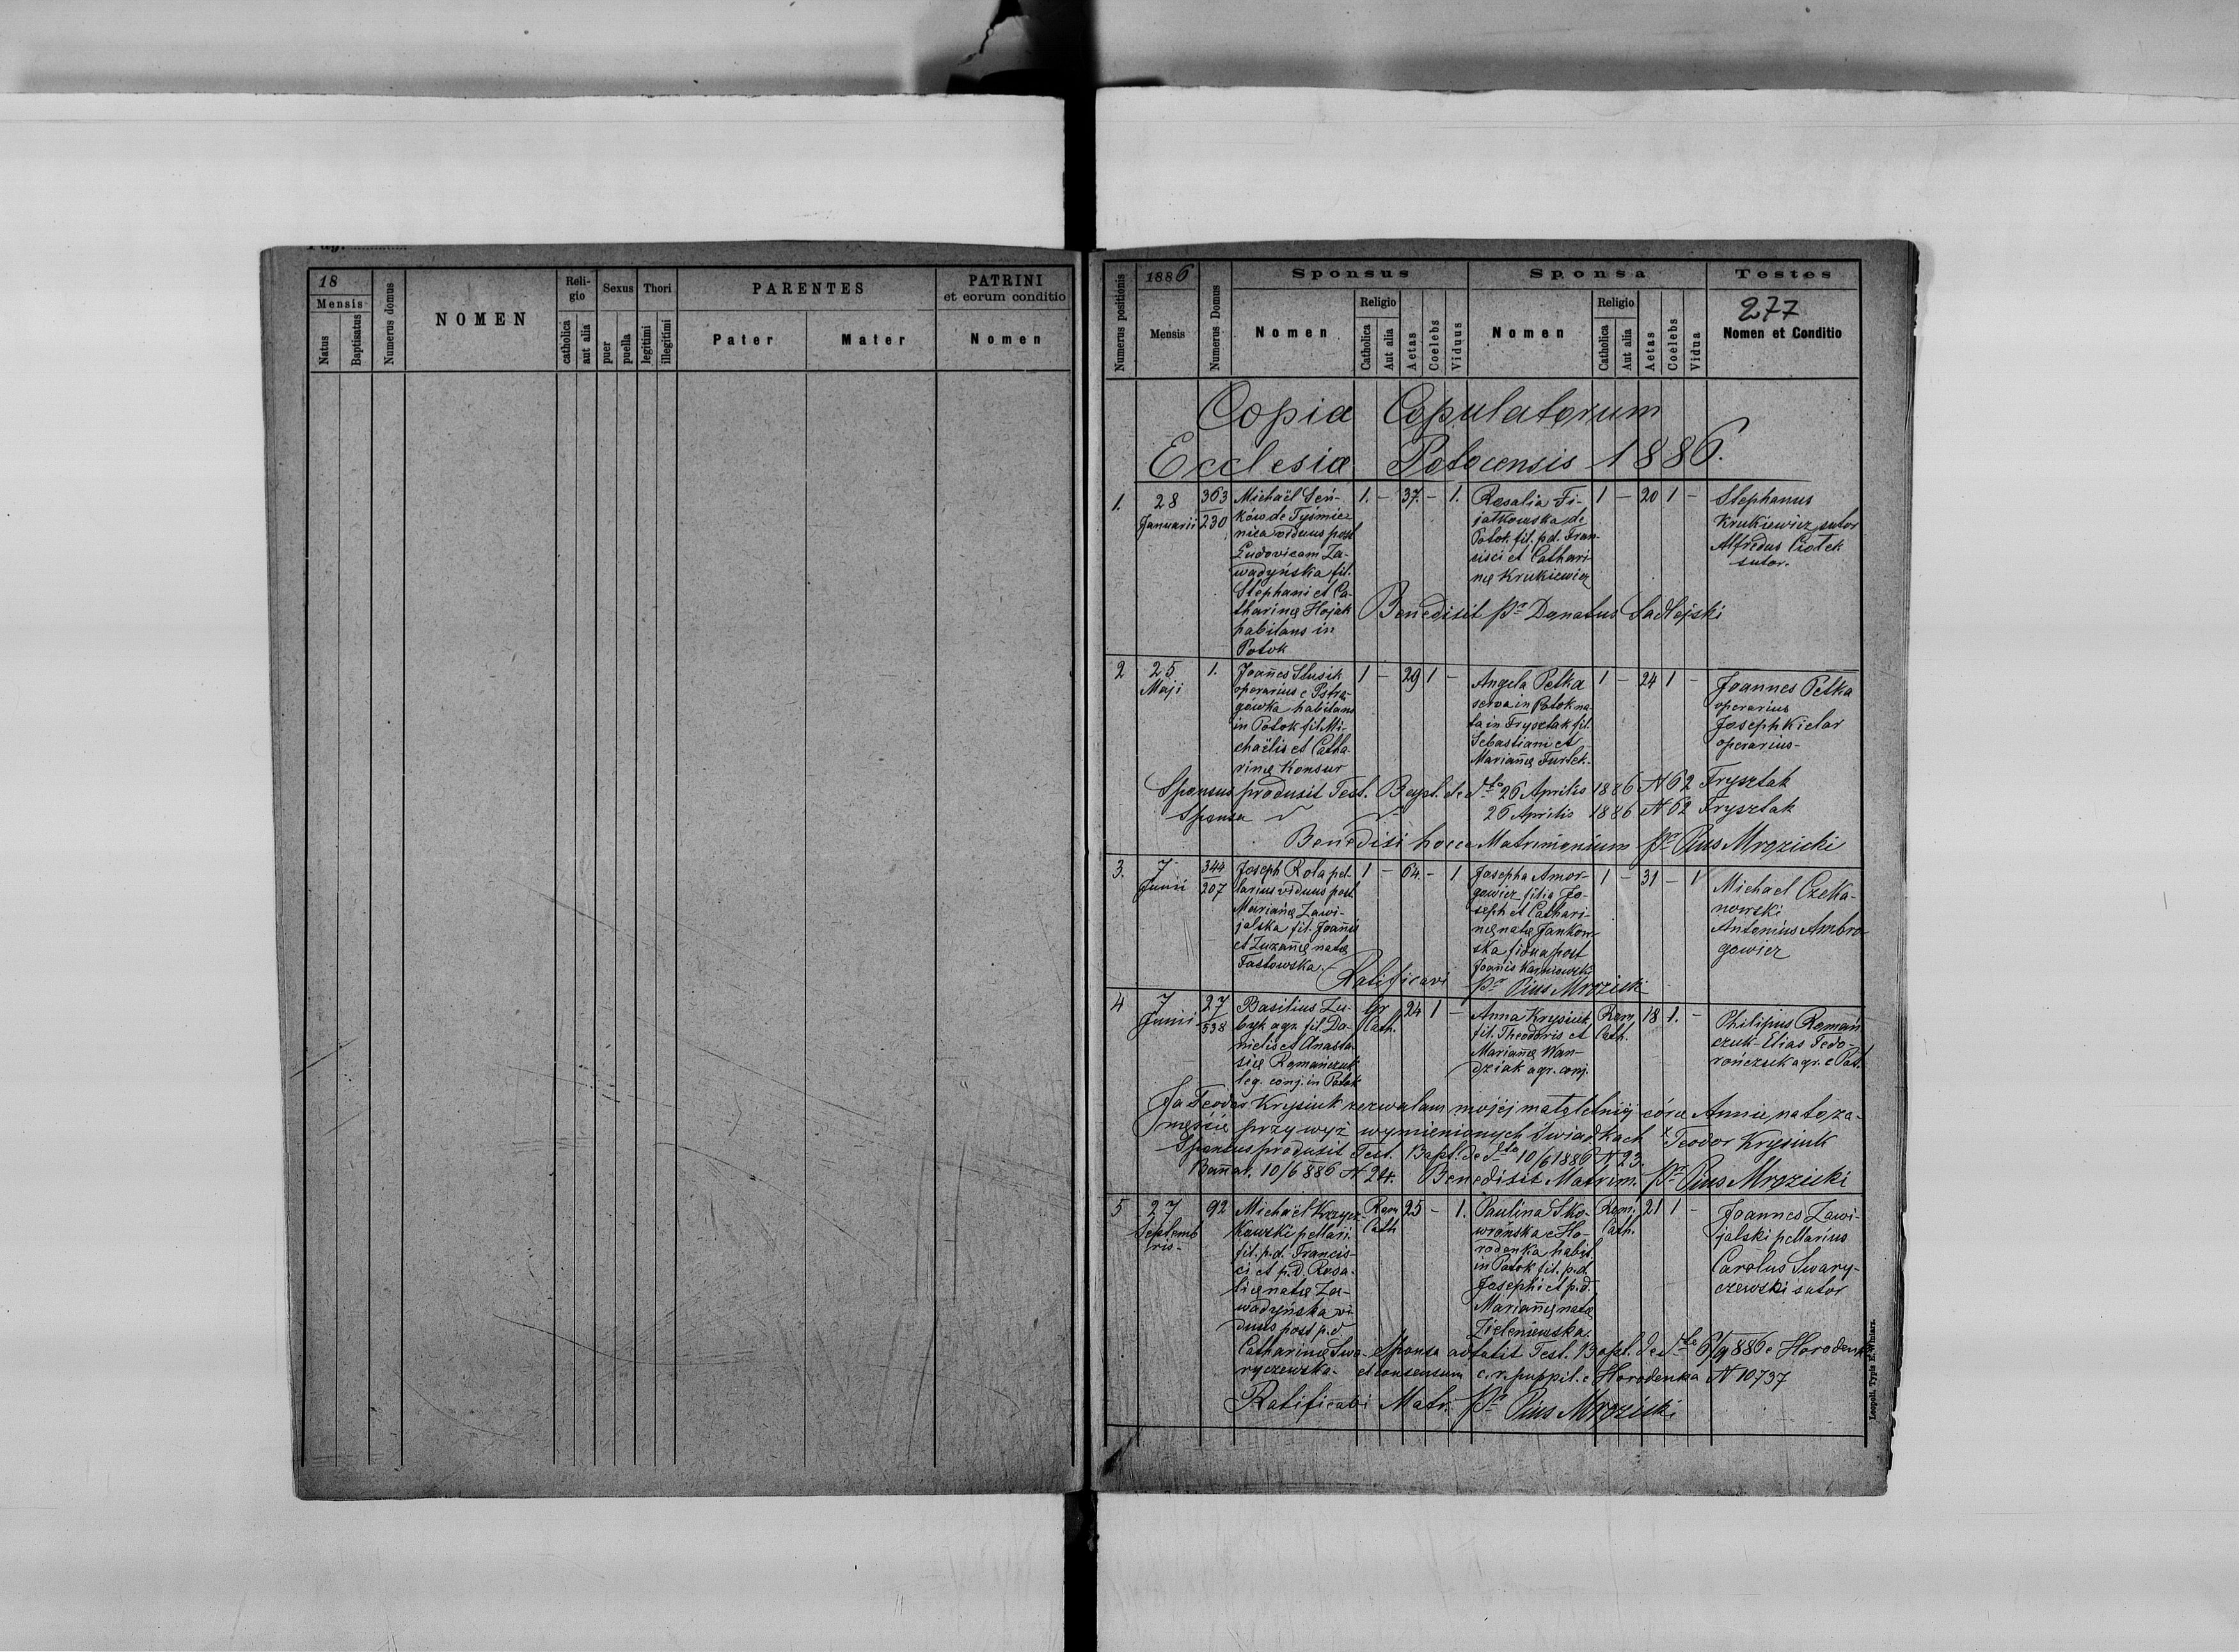 Pag.
18
Mensis
Natus
Baptisatus
Numerus domus
NOMEN
Religio
catholica
aut alia
Sexus
puer
puella
Thori
legitimi
illegitimi
PARENTES
Pater
Mater
PATRINI
et eorum conditio
Nomen
Numerus positionis
1886
Mensis
Numerus Domus
Sponsus
Nomen
Religio
Catholica
Aut alia
Aetas
Coelebs
Viduus
Sponsa
Nomen
Religio
Catholica
Aut alia
Aetas
Coelebs
Vidua
Testes
277
Nomen et Conditio
Copia Copulatorum
Ecclesiæ Potocensis 1886.
1.
28
Januarii
363
230
Michaël Seń-
ków de Tyśmie-
nica viduus post
Ludovicam Za-
wadyńska fil.
Stephani et Ca-
tharinę Hojak
habitans in
Potok
1. - 37. - 1.
Rosalia Fi-
jatkowska de
Potok fil. p.d. Fran-
cisci et Cathari-
nę Krukiewicz
1 - 20 1 -
Stephanus
Krukiewicz sutor
Alfredus Ciołek
sutor.
Benedixit pr Donatus Sadlejski
2
25
Maji
1.
Joan̄es Slusik
operarius e Pstrą-
gowka habitans
in Potok fil. Mi-
chaëlis et Catha-
rinę Konsur
1 - 29 1 -
Angela Petka
serva in Potok na-
ta in Frysztak fil.
Sebastiani et
Marian̄ę Furtek.
1 - 24 1 -
Joannes Petka
operarius
Joseph Kielar
operarius -
Sponsus produxit Test. Bapt. de dto 26 Aprilis 1886 N 62 Frysztak
Sponsa 26 Aprilis 1886 N 62 Frysztak
Benedixi hocce Matrimonium pr Pius Mrozicki
3.
7
Junii
344
207
Joseph Rola pel-
larius viduus post
Marian̄ę Zawi-
jalska fil. Joan̄is
et Zuzan̄ę natę
Fastowska.
1 - 64 - 1
Josepha Amor-
gowicz filia Jo-
seph et Cathari-
nę natę Jankow-
ska vidua post
Joan̄is
1 - 31 - 1
Michael Czeka-
nowski
Antonius Ambro-
gowicz
Ratificavi pr Pius Mrozicki
4
7
Junii
27
538
Basilius Zu-
byk agr. fil. Da-
nielis et Anasta-
się Romańczuk
leg. conj. in Potok
Gr
Cath.
24 1 -
Anna Krysiuk
fil. Theodoris et
Marian̄ę Wan-
dziak agr. conj.
Rom.
Cath.
18 1. -
Philipus Romań
czuk - Elias Fedo-
rończuk agr. e Pot.
Ja Teodor Krysiuk zezwalam mojej małoletniej córce Annie na to za-
męście przy wyż wymienionych Świadkach × Teodor Krysiuk
Sponsus produxit Test. Bapt. de dto 10/6 1886 N 23.
Ban̄at. 10/6 886 N 24. Benedixit Matrim. pr Pius Mrozicki
5
27
Septemb
ris -
92
Michaël Krzycz-
kowski pellari.
fil. p.d. Francis-
ci et p.d. Rosa-
lię natę Za-
wadyńska vi-
duus post p.d.
Catharinę Swa-
ryczewska -
Rom
Cath
25 - 1.
Paulina Sko-
wrońska e Ho-
rodenka habit.
in Potok fil. p.d.
Josephi et p.d.
Marian̄ę natę
Zieleniewska.
Rom.
Cath.
21 1 -
Joannes Zawi-
jalski pellarius
Carolus Swary-
czewski sutor
Sponsa adtulit Test. Bapt. de dto 6/9 886 e Horodenk
et consensum c. r. puppil. e Horodenka N 10737
Ratificavi Matr. pr Pius Mrozicki
Leopoli. Typis E. Winiarz.